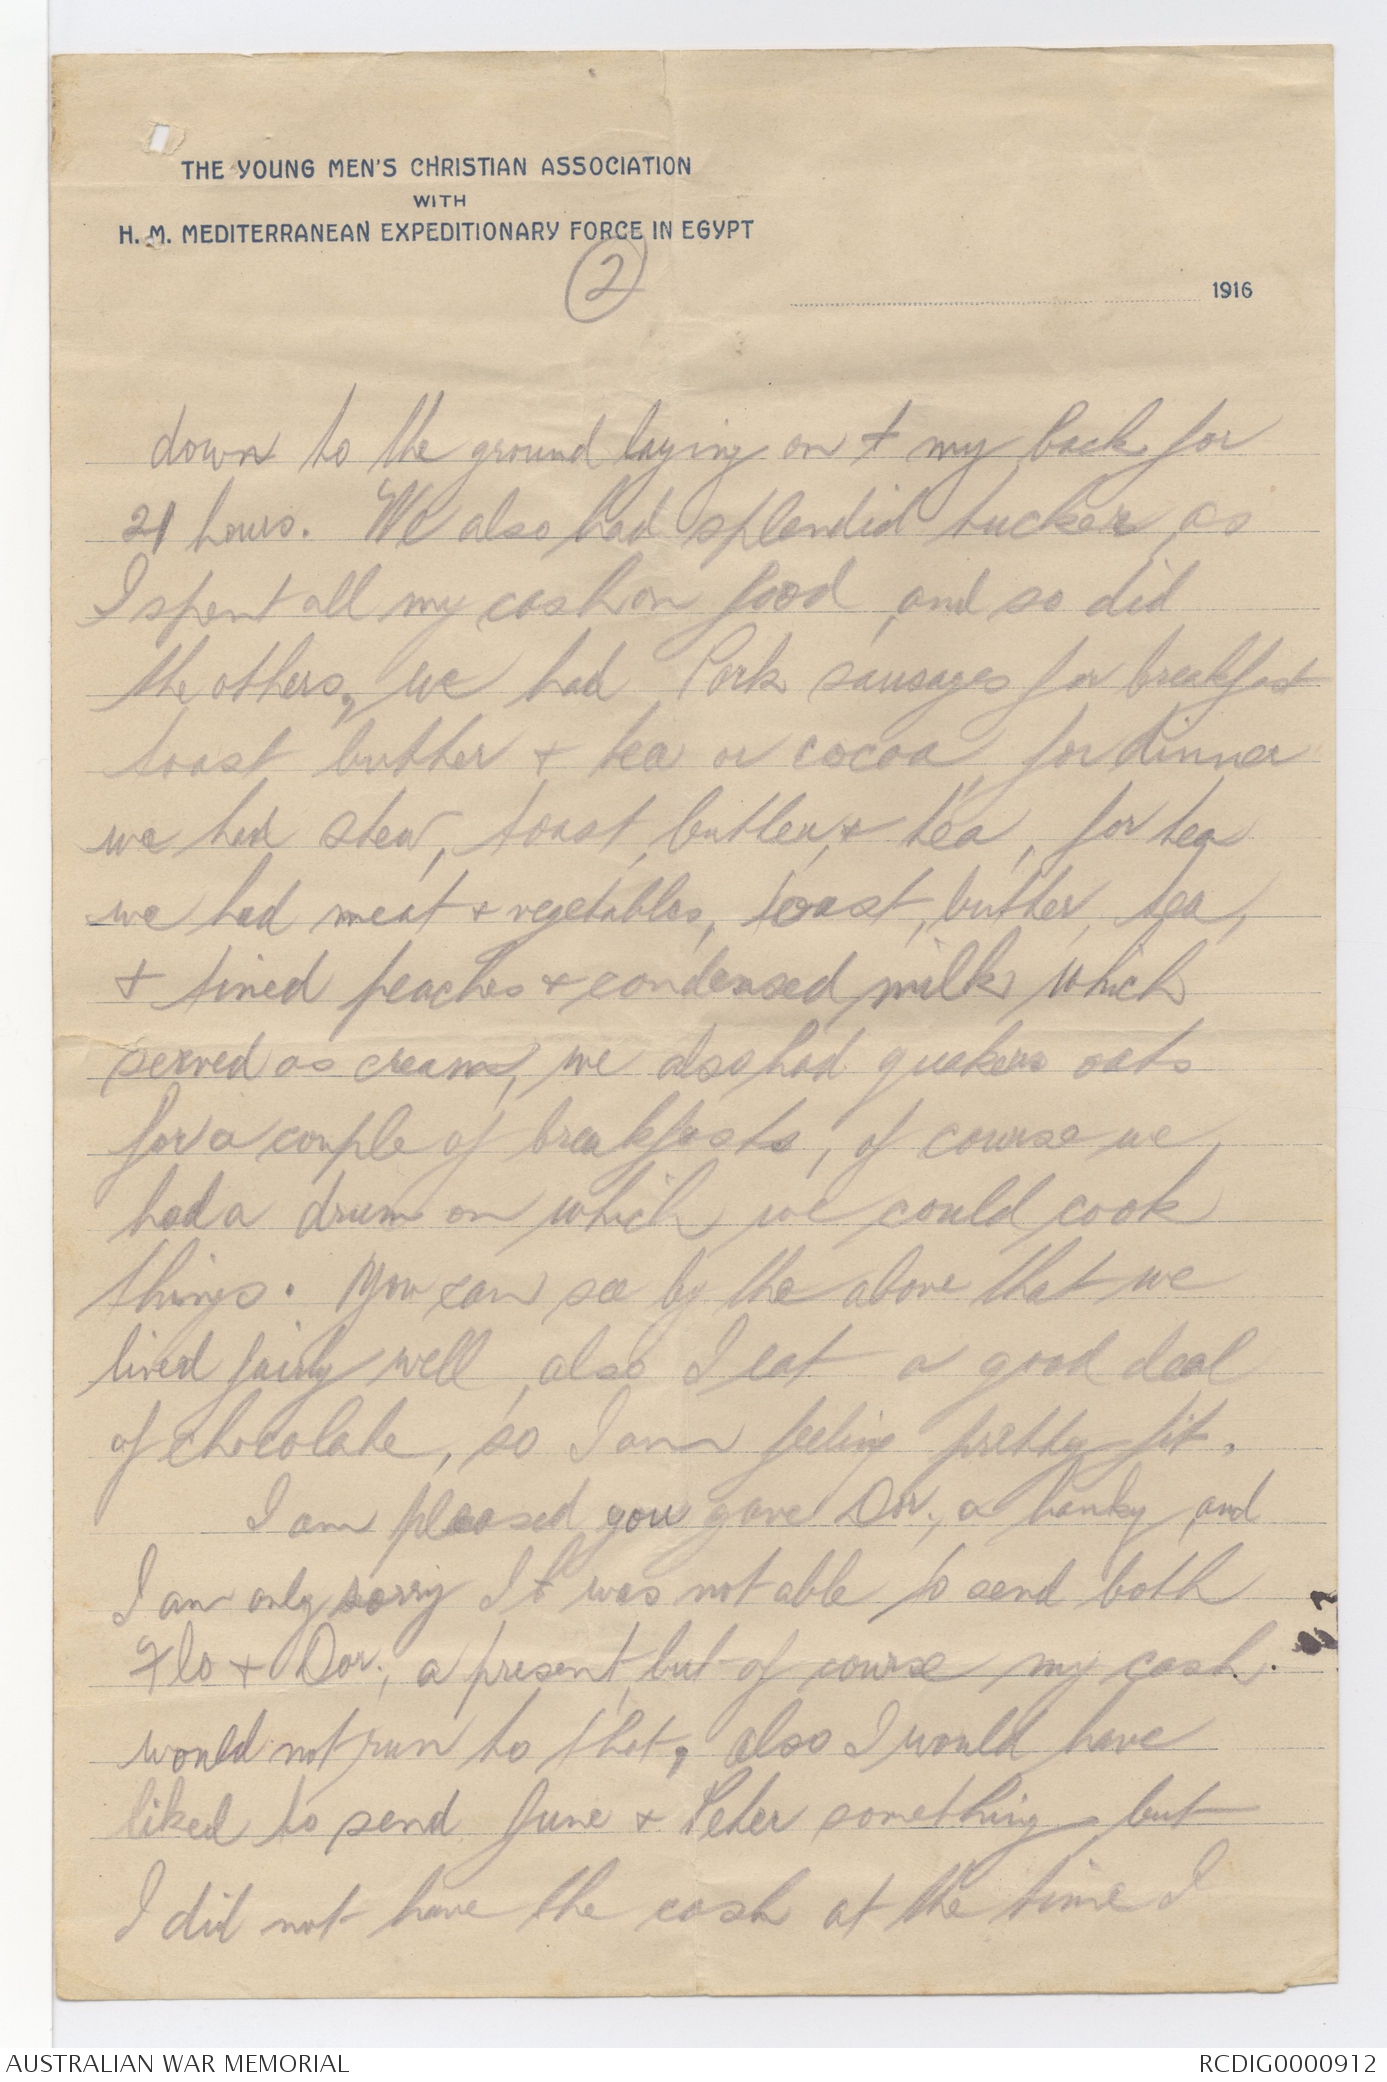 THE YOUNG MEN'S CHRISTIAN ASSOCIATION
WITH
H. M. MEDITERRANEAN EXPEDITIONARY FORCE IN EGYPT
2
1916
down to the ground laying on + my back for
21 hours. We also had splendid tucker, as
I spent all my cash on food, and so did
the others, we had Pork sausages for breakfast
toast butter + tea or cocoa, for dinner
we had stew, toast, butter, + tea, for tea
we had meat + vegetables, toast, butter, tea,
+ tined peaches + condensed milk which
served as cream, we also had quekers oats
for a couple of breakfasts, of course we
had a drum on which we could cook
things. You can see by the above that we
lived fairly well, also I eat a good deal
of chocolate, so I am feeling pretty fit.
I am pleased you gave Dor., a hanky, and
I am only sorry I was not able to send both
Flo + Dor., a present, but of course my cash
would not run to that, also I would have
liked to send June + Peter something but
I did not have the cash at the time I
AUSTRALIAN WAR MEMORIAL
RCDIG0000912